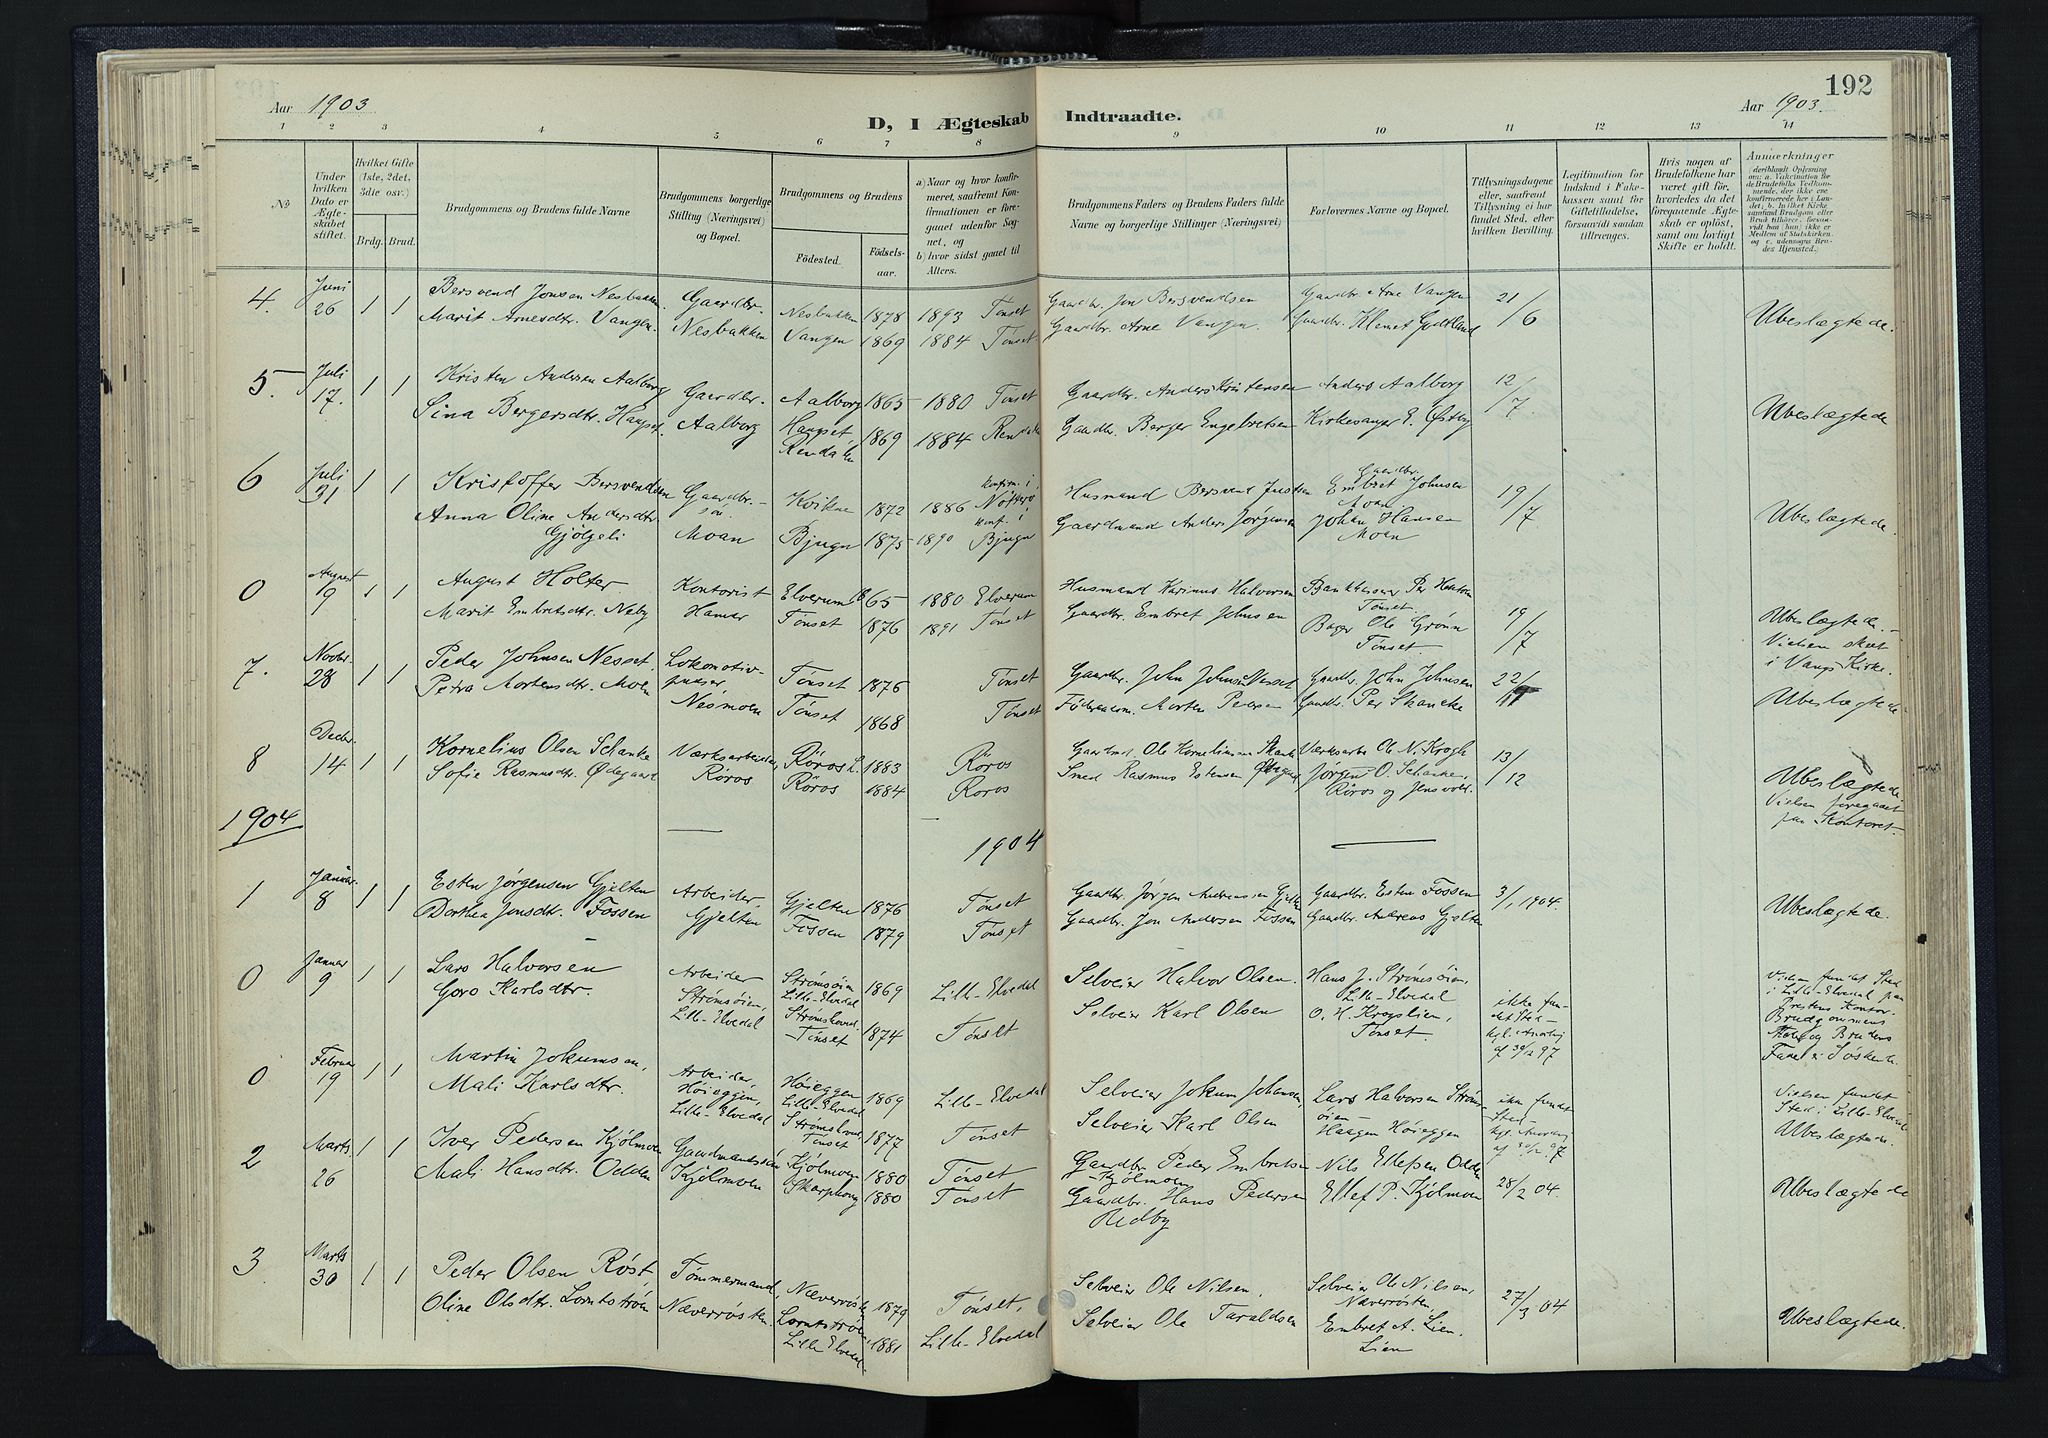 192
Aar 1903
Aar 1903.
D, I Ægteskab Indtraadte.
1 2 3 4 5 6 7 8 9 10 11 12 13 14
No
Under hvilken Dato er Ægteskabet stiftet.
Hvilket Gifte (1ste, 2det, 3die osv.)
Brdg. Brud.
Brudgommens og Brudens fulde Navne
Brudgommens borgerlige Stilling (Næringsvei) og Bopæl.
Brudgommens og Brudens
Fødested. Fødselsaar.
a) Naar og hvor konfirmeret, saafremt Konfirmationen er foregaaet udenfor Sognet, og
b) hvor sidst gaaet til Alters.
Brudgommens Faders og Brudens Faders fulde Navne og borgerlige Stillinger (Næringsvei)
Forlovernes Navne og Bopæl.
Tillysningsdagene eller, saafremt Tillysning ei har fundet Sted, efter hvilken Bevilling.
Legitimation for Indskud i Fakkassen samt for Giftetilladelse, forsaavidt saadan tiltrænges.
Hvis nogen af Brudefolkene har været gift før, hvorledes da det foregaaende Ægteskab er opløst, samt om lovligt Skifte er holdt.
Anmærkninger
4. Juni 26 1 1 Bersvend Jonsen Nesbakken Gaardbr. Nesbakken 1878 1893 Tønset Gaardbr. Jon Bersvendsen Gaardbr. Arne Vangen 21/6 Ubeslægtede.
Marit Arnesdtr. Vangen. Nesbakken Vangen 1869 1884 Tønset Gaardbr. Arne Vangen. Gaardbr. Klemet Godtland
5. Juli 17. 1 1 Kristen Andersen Aalborg Gaardbr. Aalborg 1865 1880 Tønset Gaardbr. Anders Kristensen Anders Aalborg 12/7 Ubeslægtede
Sina Bergersdtr. Haugset. Aalborg Haugset, Rendalen 1869 1884 Rendalen Gaardbr. Berger Engebretsen Kirkesanger E. Østby
6 Juli 31 1 1 Kristoffer Bersvendsen Gaardbr.søn Kvikne 1872 1886 Konfirm. i Husmand Bersvend Gaardbr. Embret Johnsen Moan 19/7 Ubeslægtede
Anna Oline Andersdtr. Gjølgeli Moan Bjugn 1875 1890 konf. i Bjugn Gaardmand Anders Jørgensen Johan Hansen Moen
0 August 19 1 1 August Holter Kontorist Elverum 1865 1880 Elverum Husmand Karinus Halvorsen Bankkasserer Per Tønset. 19/7 Ubeslægtede.
Marit Embretsdtr. Naby Hamar Tønset 1876 1891 Tønset Gaardbr. Embret Johnsen Bager Ole Grønn Tønset. Vielsen skeet i Vangs Kirke.
7. Novbr. 28 1 1 Peder Johnsen Nesset. Lokomotivpusser, Tønset 1876 Tønset Gaardbr. John Johnsen Nesset Gaardbr. John Johnsen 22/11 Ubeslægtede
Petra Mortensdtr. Moen Nesmoen Tønset 1868 Tønset Føderaadsm. Morten Pedersen Gaardbr. Per Skancke
8 Decbr. 14 1 1 Kornelius Olsen Schanke Værksarbeider, Røros L. 1883 Røros Gaardmd. Ole Korneliussen Skanke Værksarb. Ole N. Krogh 13/12 Ubeslægtede
Sofie Rasmusdtr. Ødegaard Røros Røros 1884 Røros Smed Rasmus Estensen Ødegaard Jørgen O. Schanke, Røros og Jensvold. Vielsen foregaaet paa Kontoret.
1904
1904
1 Januar 8 1 1 Esten Jørgensen Gjelten Arbeider, Gjelten 1876 Tønset Gaardbr. Jørgen Andreassen Gjelten Gaardbr. Esten Fossen 3/1 1904. Ubeslægtede.
Dorthea Jonsdtr. Fossen Gjelten Fossen 1879 Tønset Gaardbr. Jon Andersen Fossen Gaardbr. Andreas Gjelten
0 Januar 9 1 1 Lars Halvorsen Arbeider Strømsøien Lille-Elvedal 1869 Lille-Elvedal Selveier Halvor Olsen. Hans J. Strømsøien, Lille-Elvedal
Goro Karlsdtr. Strømsøien, Lille-Elvedal Strømshoved. Tønset 1874 Tønset Selveier Karl Olsen O. H. Kroglien, Tønset. ikke fundet Sted kgl. Anordn. af 30/12 97
Vielsen fundet Sted i Lille-Elvedal paa Prestens Kontor. Brudgommens og Brudens Søskende.
0 Februar 19 1 1 Martin Jokumsen, Arbeider, Høieggen Lille-Elvedal 1869 Lille-Elvedal Selveier Jokum Johansen, Lars Halvorsen Strømsøien ikke fundet Sted kgl. Anordn. af 30/12 97
Mali Karlsdtr. Høieggen, Lille-Elvedal Strømshoved, Tønset 1877 Tønset Selveier Karl Olsen Haagen Høieggen Vielsen fundet Sted i Lille-Elvedal Ubeslægtede.
2 Marts 26 1 1 Iver Pedersen Kjølmoen Gaardmandssøn Kjølmoen 1880 Tønset Gaardbr. Peder Embretsen Kjølmoen Nils Ellefsen Odden 28/2 04. Ubeslægtede
Mali Hansdtr. Odden Kjølmoen Skarphoug 1880 Tønset Gaardbr. Hans Pedersen Redby Ellef P. Kjølmoen
3 Marts 30 1 1 Peder Olsen Røst, Tømmermand, Næverrøsten 1879 Tønset, Selveier Ole Nilsen, Selveier Ole Nilsen, Næverrøsten, 27/3 04 Ubeslægtede.
Oline Olsdtr. Lorntstrøen Næverrøsten. Lorntstrøen, Lille Elvedal 1881 Lille-Elvedal Selveier Ole Taraldsen Embret A. Lien, Lien